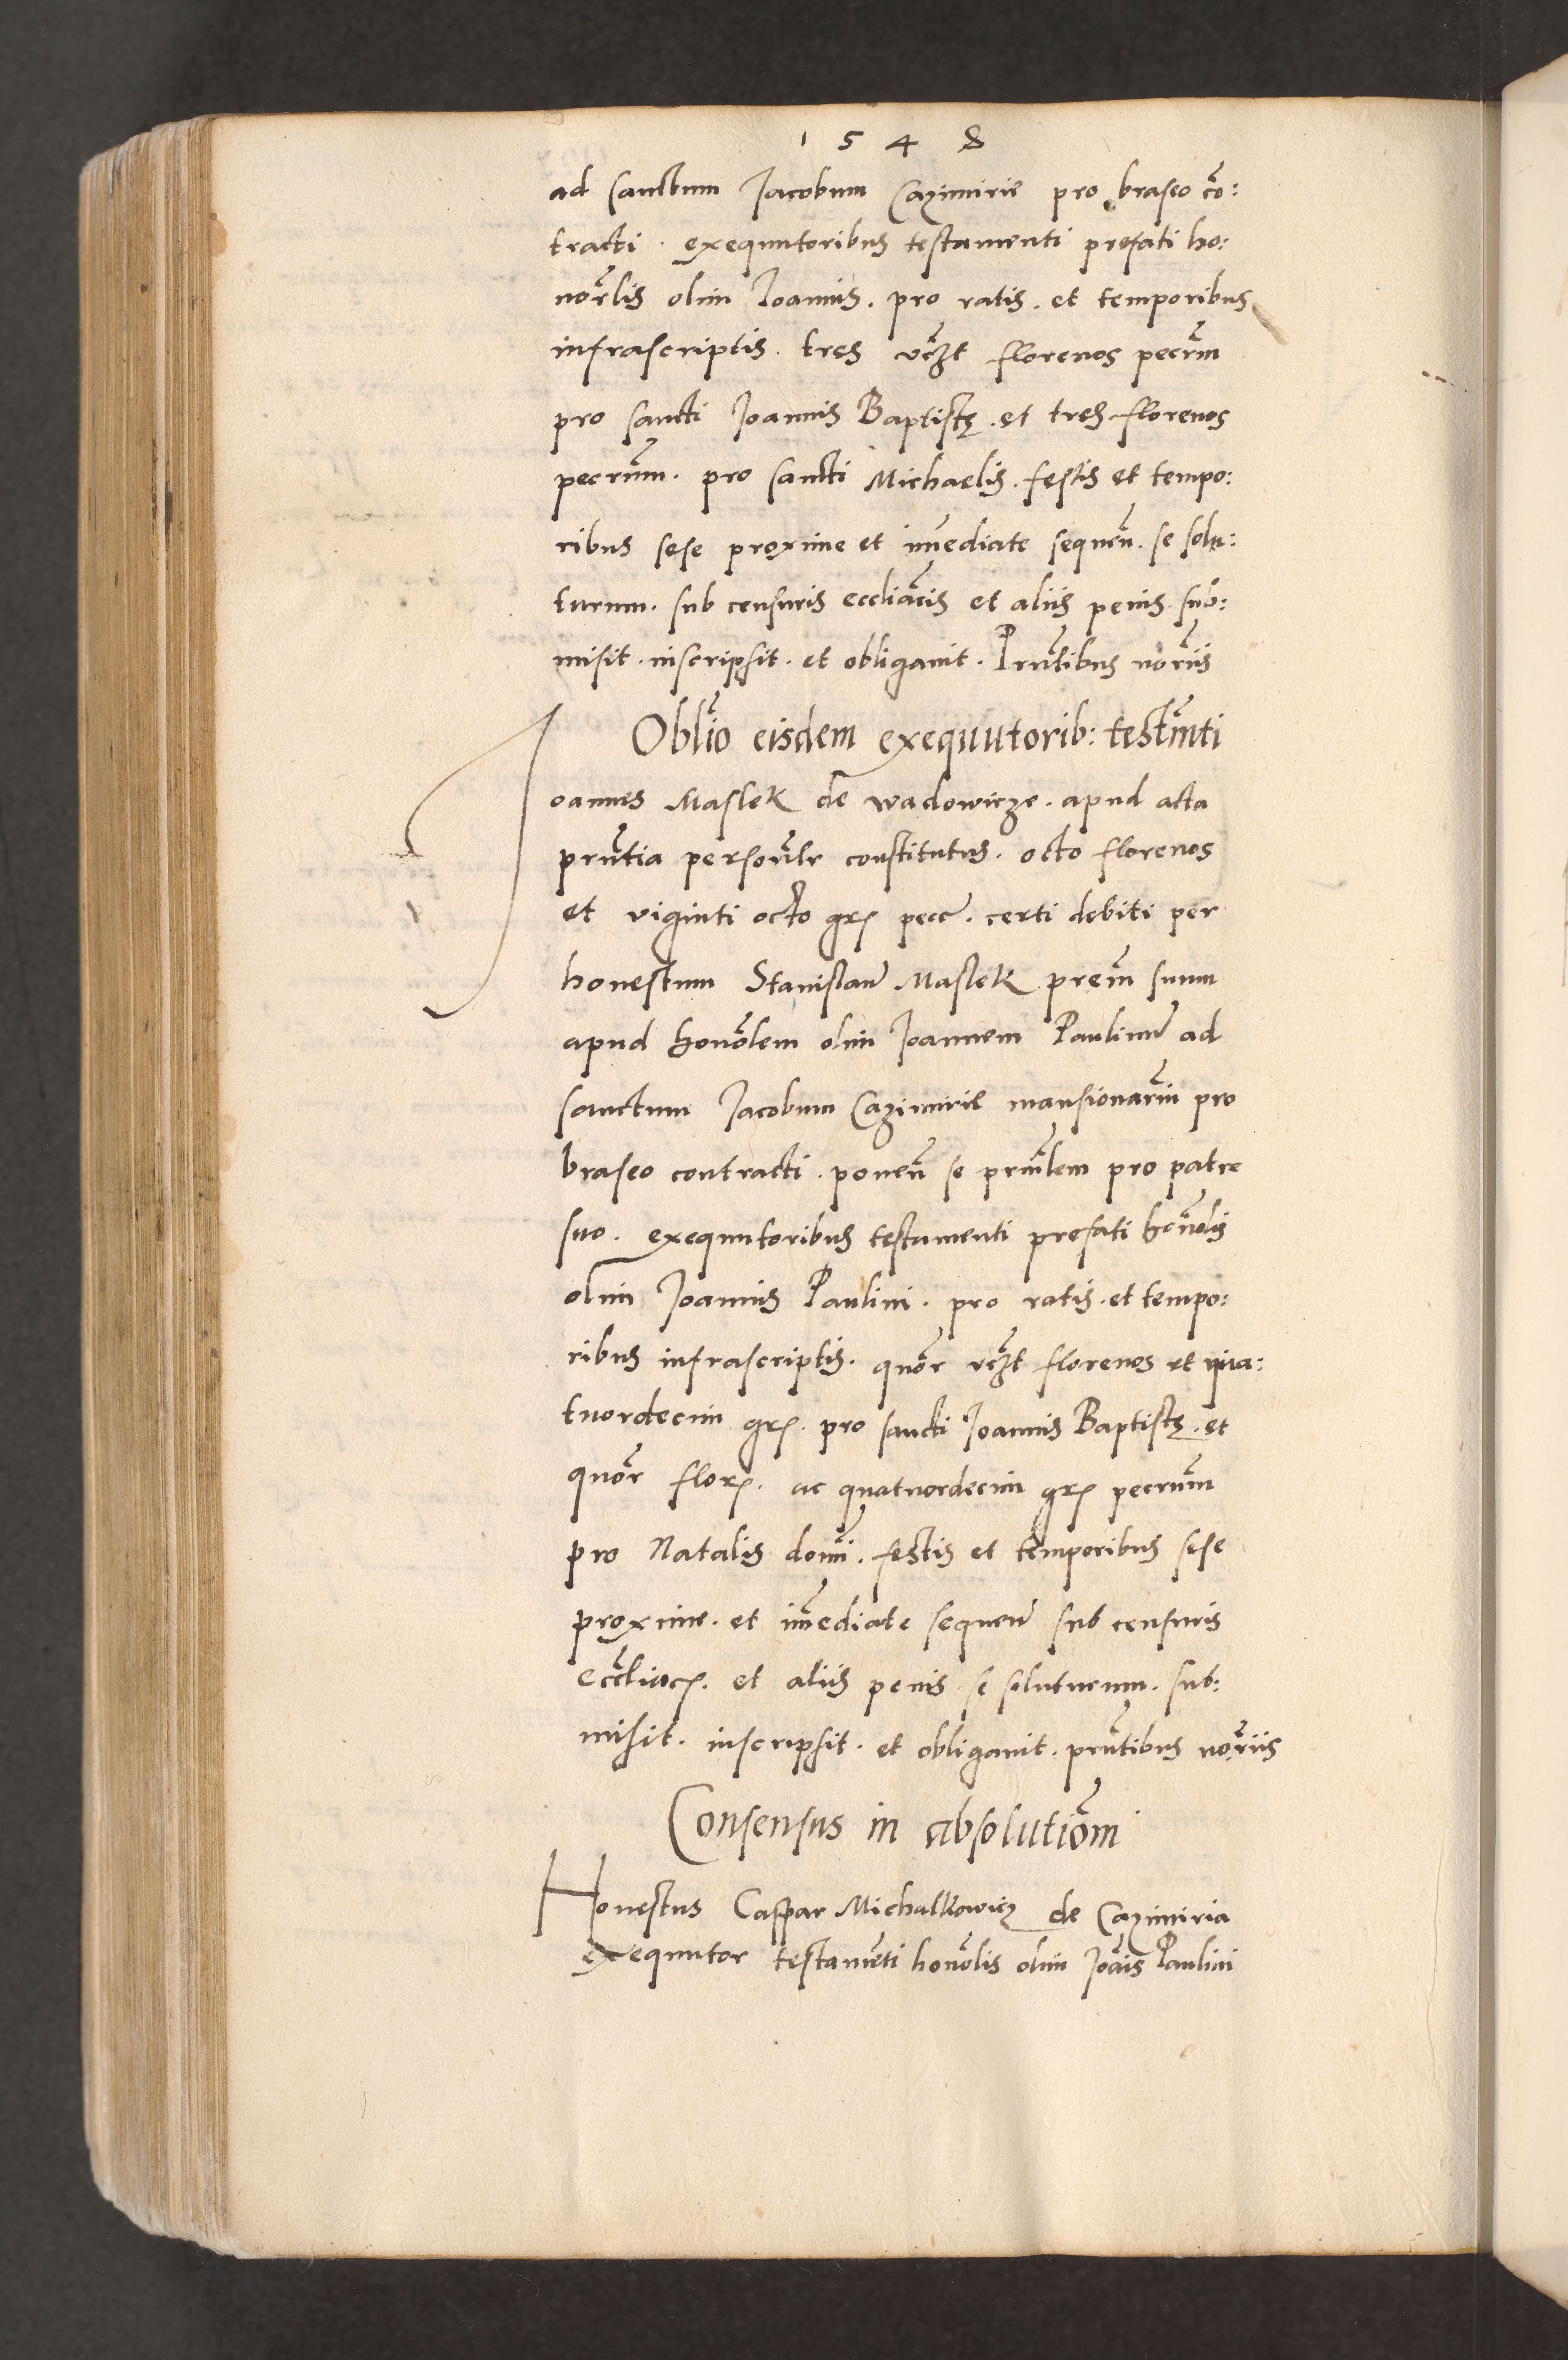 1548
ad sanctum Jacobum Cazimirię pro braseo cō:
tracti. exequutoribus testamenti prefati ho:
norłis olim Joannis. pro ratis. et temporibus
infrascriptis. tres vczt florenos pecrm̄
pro sancti Joannis Baptistę. et tres florenos
pecrum̄. pro sancti Michaelis. festis et tempo:
ribus sese proxime et im̄ediate sequēn. se solu:
turum. sub censuris eccliācis et aliis penis. sub:
misit. inscripsit. et obligauit. Prn̄tibus nor̄iis
Obliō eisdem exequutorib: testm̄ti
Joannes Maslek de Wadowicze. apud acta
prn̄tia personlr̄ constitutus. octo florenos
et viginti octo grs̄ pecc̄. certi debiti per
honestum Stanislaū Maslek prem̄ suum
apud honōlem olim Joannem Paulinū ad
sanctum Jacobum Cazimirię mansionariū pro
braseo contracti. ponen̄ se prin̄lem pro patre
suo. exequutoribus testamenti prefati honōlis
olim Joannis Paulini. pro ratis. et tempo:
ribus infrascriptis. quōr vczt florenos et qua:
tuordecim grs̄. pro sancti Joannis Baptistę. et
quōr flors̄. ac quatuordecim grs̄ pecrum̄
pro Natalis domī. festis et temporibus sese
proxime. et im̄ediate sequen̄ sub censuris
eccliacs̄. et aliis penis se soluturum. sub:
misit. inscripsit. et obligauit. prn̄tibus nor̄iis
Consensus in absolutiōm
Honestus Caspar Michalkowicz de Cazimiria
exequutor testamēti honōlis olim Joāis Paulini